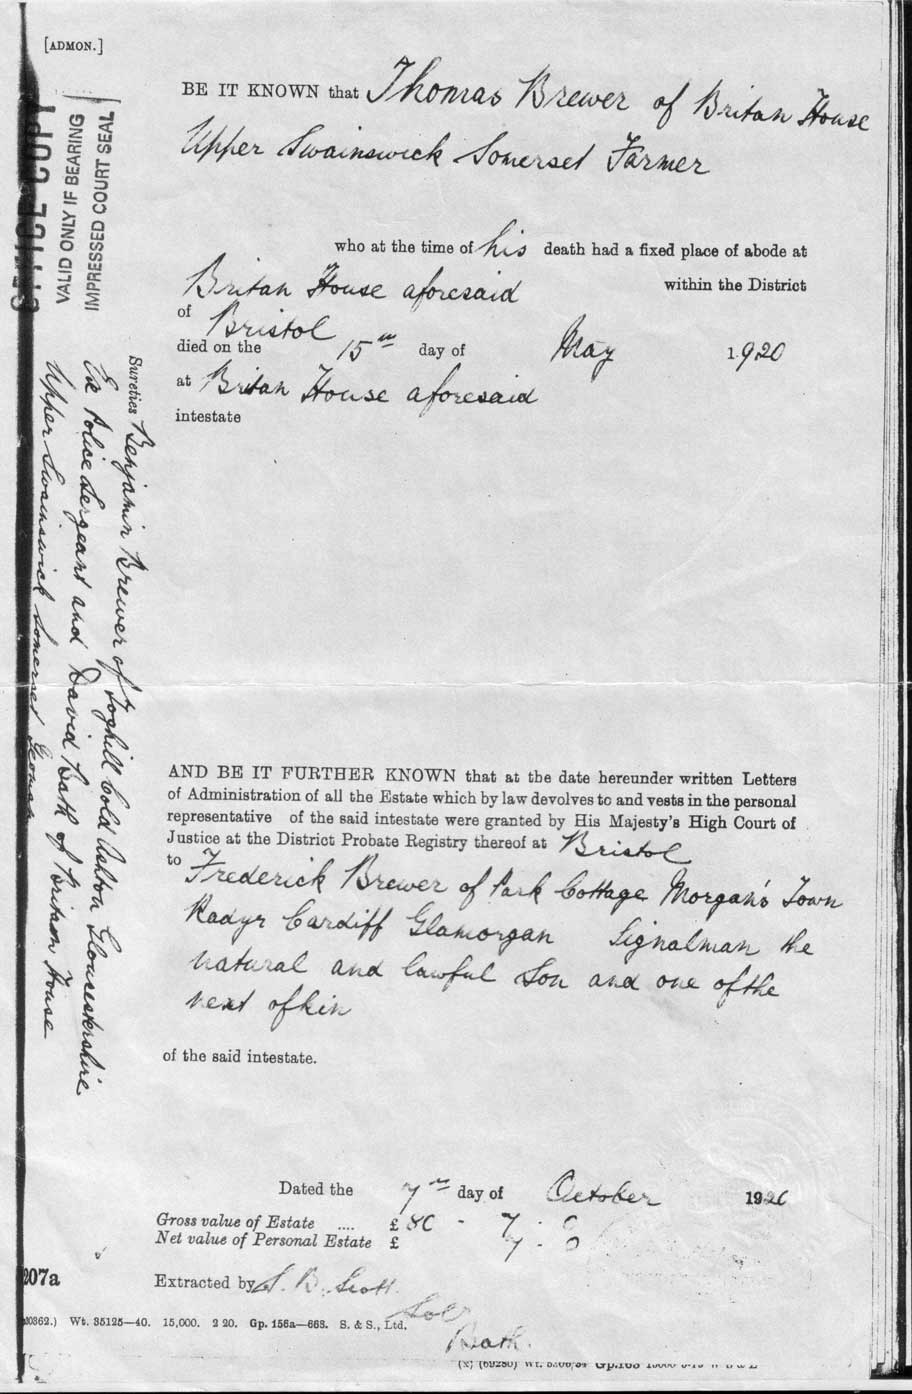 [ADMON.]
OFFICE COPY
VALID ONLY IF BEARING
IMPRESSED COURT SEAL
BE IT KNOWN that Thomas Brewer of Britan House
Upper Swainswick Somerset Farmer
who at the time of his death had a fixed place of abode at
Britan House aforesaid within the District
of Bristol
died on the 15th day of May 1920
at Britan House aforesaid
intestate
Sureties Benjamin Brewer of Toghill Cold Ashton Gloucestershire
Ex Police Sergeant and David Bath of Britan House
Upper Swainswick Somerset Yeoman
AND BE IT FURTHER KNOWN that at the date hereunder written Letters
of Administration of all the Estate which by law devolves to and vests in the personal
representative of the said intestate were granted by His Majesty's High Court of
Justice at the District Probate Registry thereof at Bristol
to Frederick Brewer of Park Cottage Morgan's Town
Radyr Cardiff Glamorgan Signalman the
natural and lawful Son and one of the
next of kin
of the said intestate.
Dated the 7th day of October 1920
Gross value of Estate .... £ 80 - 7 - 0
Net value of Personal Estate £ 7 - 0
207a
Extracted by S. B. Scott.
Solr
Bath.
20362.) Wt. 35125—40. 15,000. 2 20. Gp. 156a—668. S. & S., Ltd.